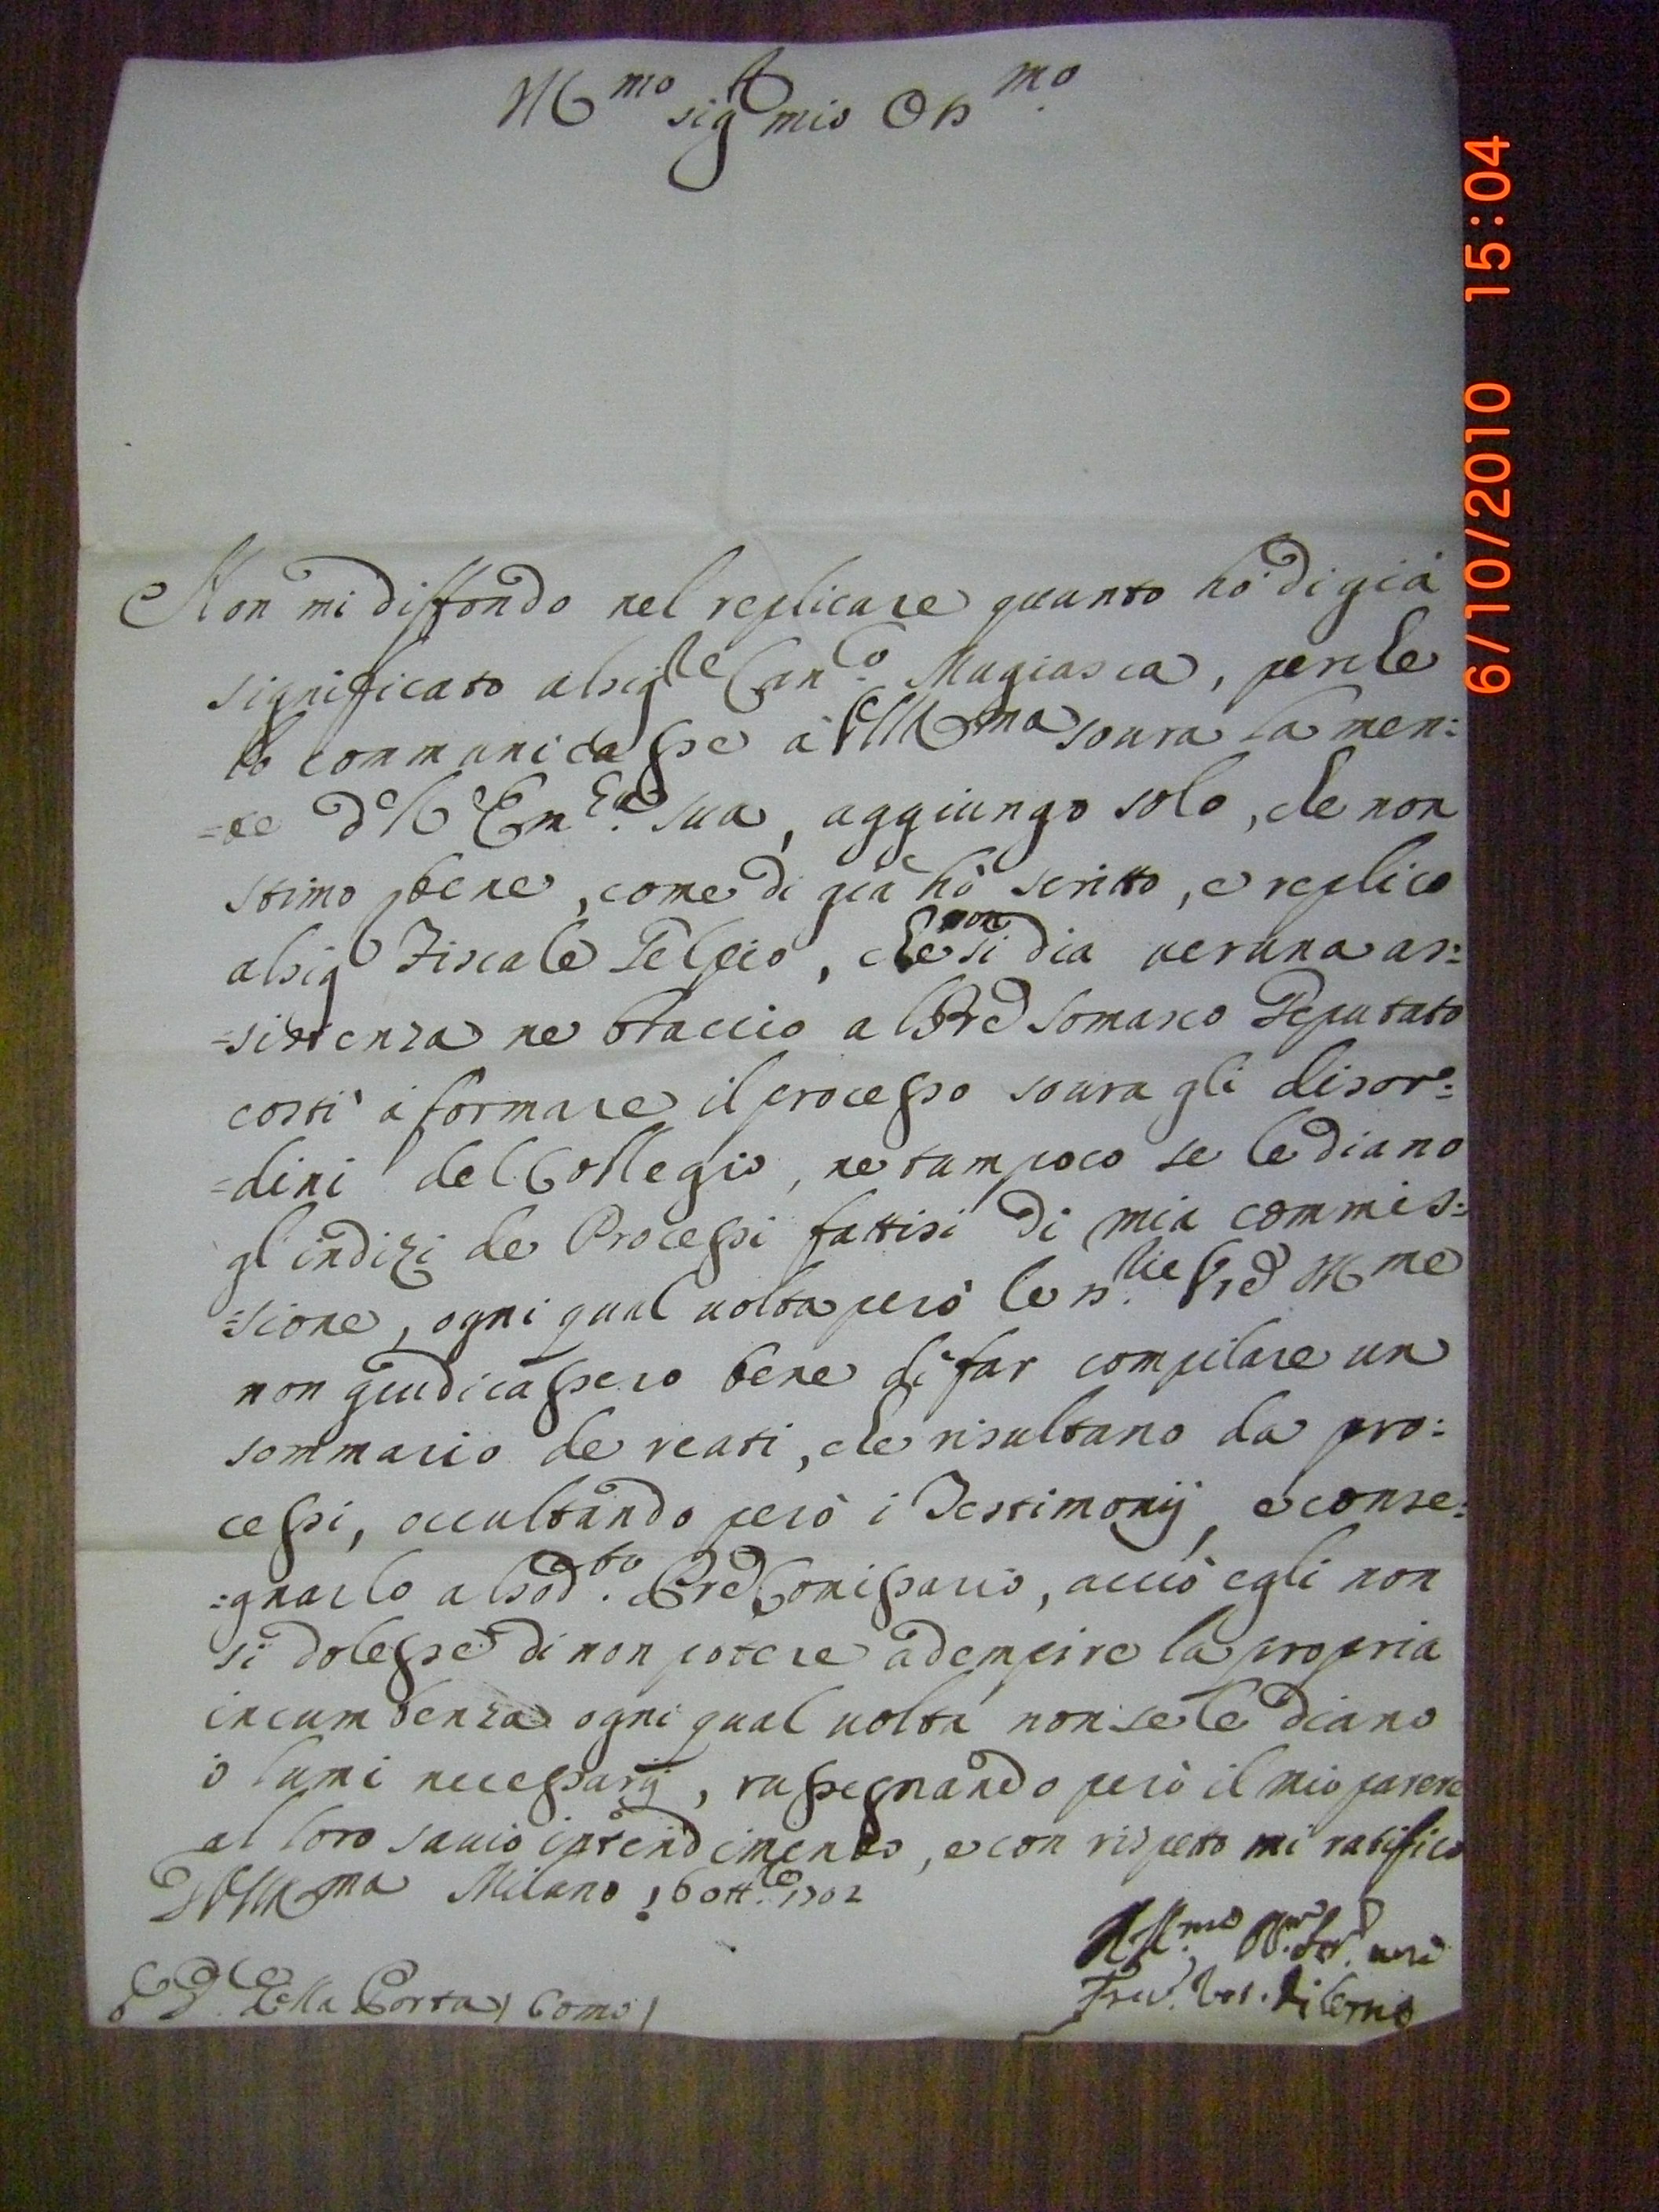 Ill^mo sig^r mio Oss^mo
Non mi diffondo nel replicare quanto hò di già
significato al sig^re Can^co Magiasca, perche
lo communicasse à V S Ill^ma soura la men:
=te dell' Em^za sua, aggiungo solo, che non
stimo bene, come di già hò scritto, e replico
al sig^r Fiscale Pelpio, che non si dia ueruna as:
=sistenza ne braccio al Pre Somasco Deputato
costi à formare il processo soura gli disor=
=dini del Collegio, ne tampoco se le diano
gl'indizi de Processi fattisi di mia commis:
=sione, ogni qual uolta però le Ill^me
non giudicassero bene di far compilare un
sommario de reati, che risultano da pro:
cessi, occultando però i Testimonij, e conse:
=gnarlo al sod^to Pre Comissario, acciò egli non
si dolesse di non potere adempire la propria
incumbenza ogni qual uolta non se le diano
i lumi necessarij, rassegnando però il mio parere
al loro sauio intendimento, e con rispetto mi ratifico
D V S Ill^ma Milano 16 ott^re 1702
Della Porta / Como /
di Como
6/10/2010 15:04